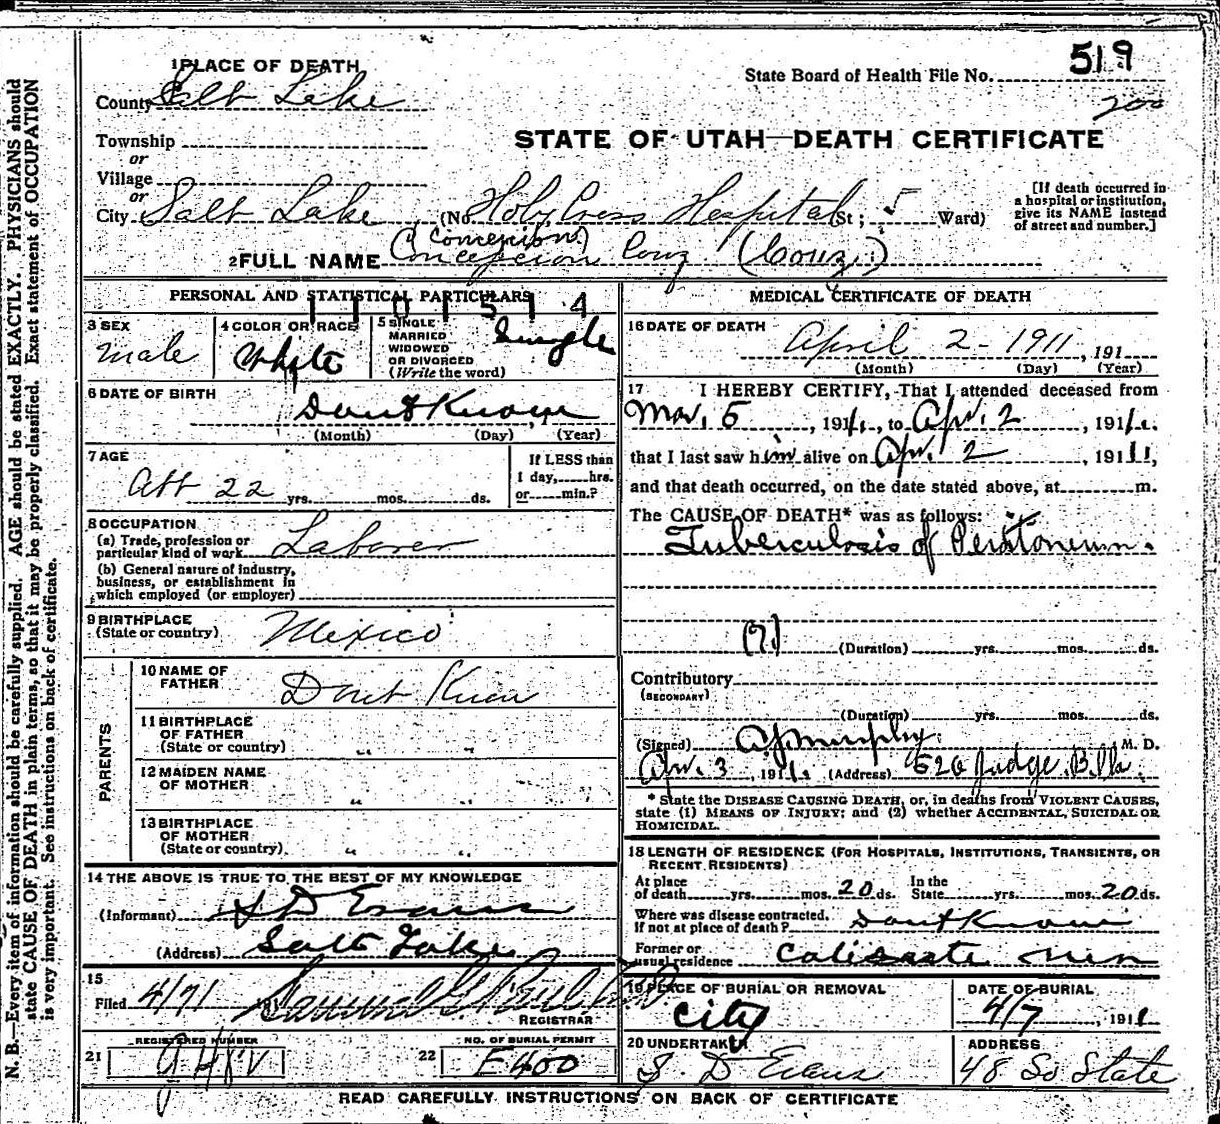 1 PLACE OF DEATH
State Board of Health File No. 519
County Salt Lake
200
Township
STATE OF UTAH—DEATH CERTIFICATE
or
Village
or
City Salt Lake (No. Holy Cross Hospital St; 5 Ward)
[If death occurred in a hospital or institution, give its NAME instead of street and number.]
(Concepcion)
2 FULL NAME Concepcion Couz (Couz)
PERSONAL AND STATISTICAL PARTICULARS
3 SEX
male
4 COLOR OR RACE
White
5 SINGLE MARRIED WIDOWED OR DIVORCED (Write the word)
Single
6 DATE OF BIRTH
Dont Know
(Month) (Day) (Year)
7 AGE
Abt 22 yrs. mos. ds.
If LESS than 1 day, hrs. or min.?
8 OCCUPATION
(a) Trade, profession or particular kind of work Laborer
(b) General nature of industry, business, or establishment in which employed (or employer)
9 BIRTHPLACE
(State or country) Mexico
PARENTS
10 NAME OF FATHER Dont Know
11 BIRTHPLACE OF FATHER (State or country) " "
12 MAIDEN NAME OF MOTHER " "
13 BIRTHPLACE OF MOTHER (State or country) " "
14 THE ABOVE IS TRUE TO THE BEST OF MY KNOWLEDGE
(Informant) S D Evans
(Address) Salt Lake
15
Filed 4/7 191
REGISTRAR
REGISTERED NUMBER
21
NO. OF BURIAL PERMIT
22 E400
MEDICAL CERTIFICATE OF DEATH
16 DATE OF DEATH
April 2 - 1911, 191
(Month) (Day) (Year)
17 I HEREBY CERTIFY, That I attended deceased from
Mar. 5, 1911, to Apr. 2, 1911.
that I last saw him alive on Apr. 2, 1911,
and that death occurred, on the date stated above, at m.
The CAUSE OF DEATH* was as follows:
Tuberculosis of Peritoneum.
(?) (Duration) yrs. mos. ds.
Contributory
(SECONDARY)
(Duration) yrs. mos. ds.
(Signed) A J Murphy M. D.
Apr. 3, 1911. (Address) 526 Judge Bldg.
* State the DISEASE CAUSING DEATH, or, in deaths from VIOLENT CAUSES, state (1) MEANS OF INJURY; and (2) whether ACCIDENTAL, SUICIDAL OR HOMICIDAL.
18 LENGTH OF RESIDENCE (FOR HOSPITALS, INSTITUTIONS, TRANSIENTS, OR RECENT RESIDENTS)
At place of death yrs. mos. 20 ds. In the State yrs. mos. 20 ds.
Where was disease contracted, if not at place of death? Dont Know
Former or usual residence
19 PLACE OF BURIAL OR REMOVAL
City
DATE OF BURIAL
4/7, 1911
20 UNDERTAKER
S. D Evans
ADDRESS
48 So State
READ CAREFULLY INSTRUCTIONS ON BACK OF CERTIFICATE
N. B.—Every item of information should be carefully supplied. AGE should be stated EXACTLY. PHYSICIANS should
state CAUSE OF DEATH in plain terms, so that it may be properly classified. Exact statement of OCCUPATION
is very important. See instructions on back of certificate.